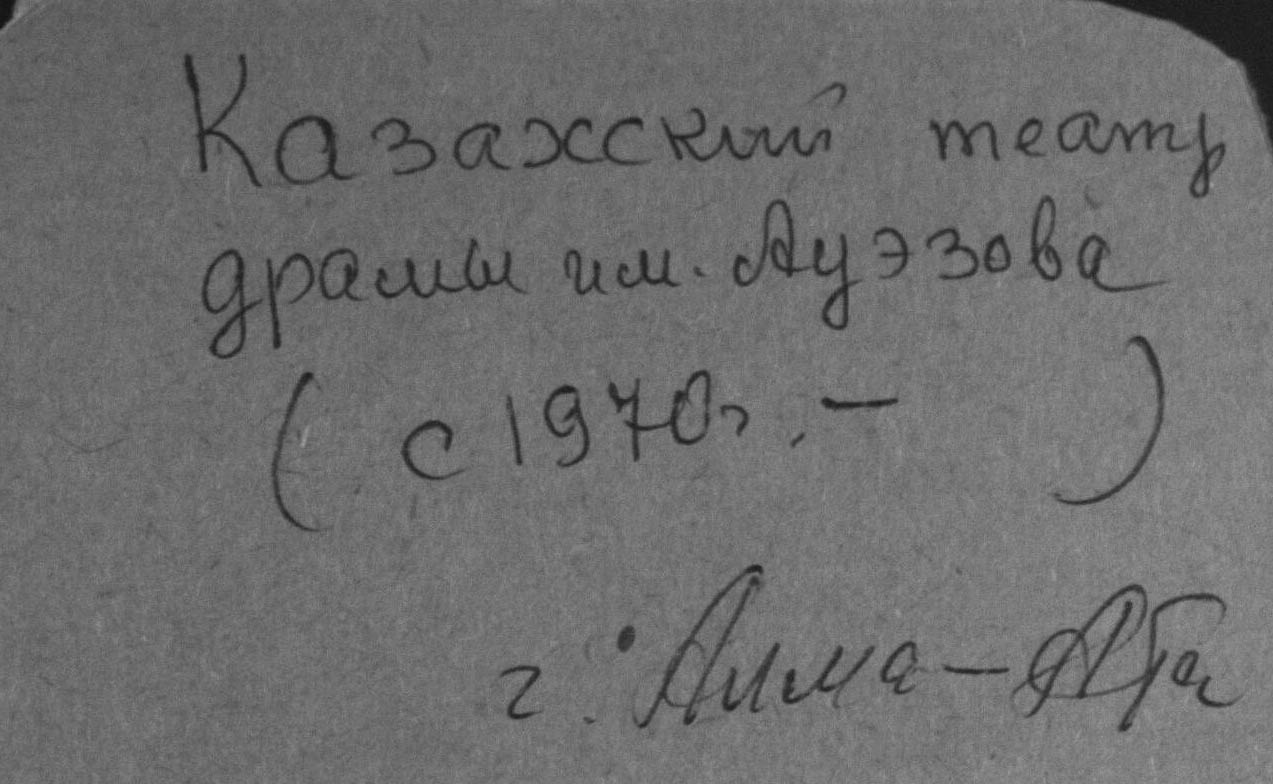 Казахский театр
драмы им. Ауэзова
( с 1970г. – )
г. Алма-Ата